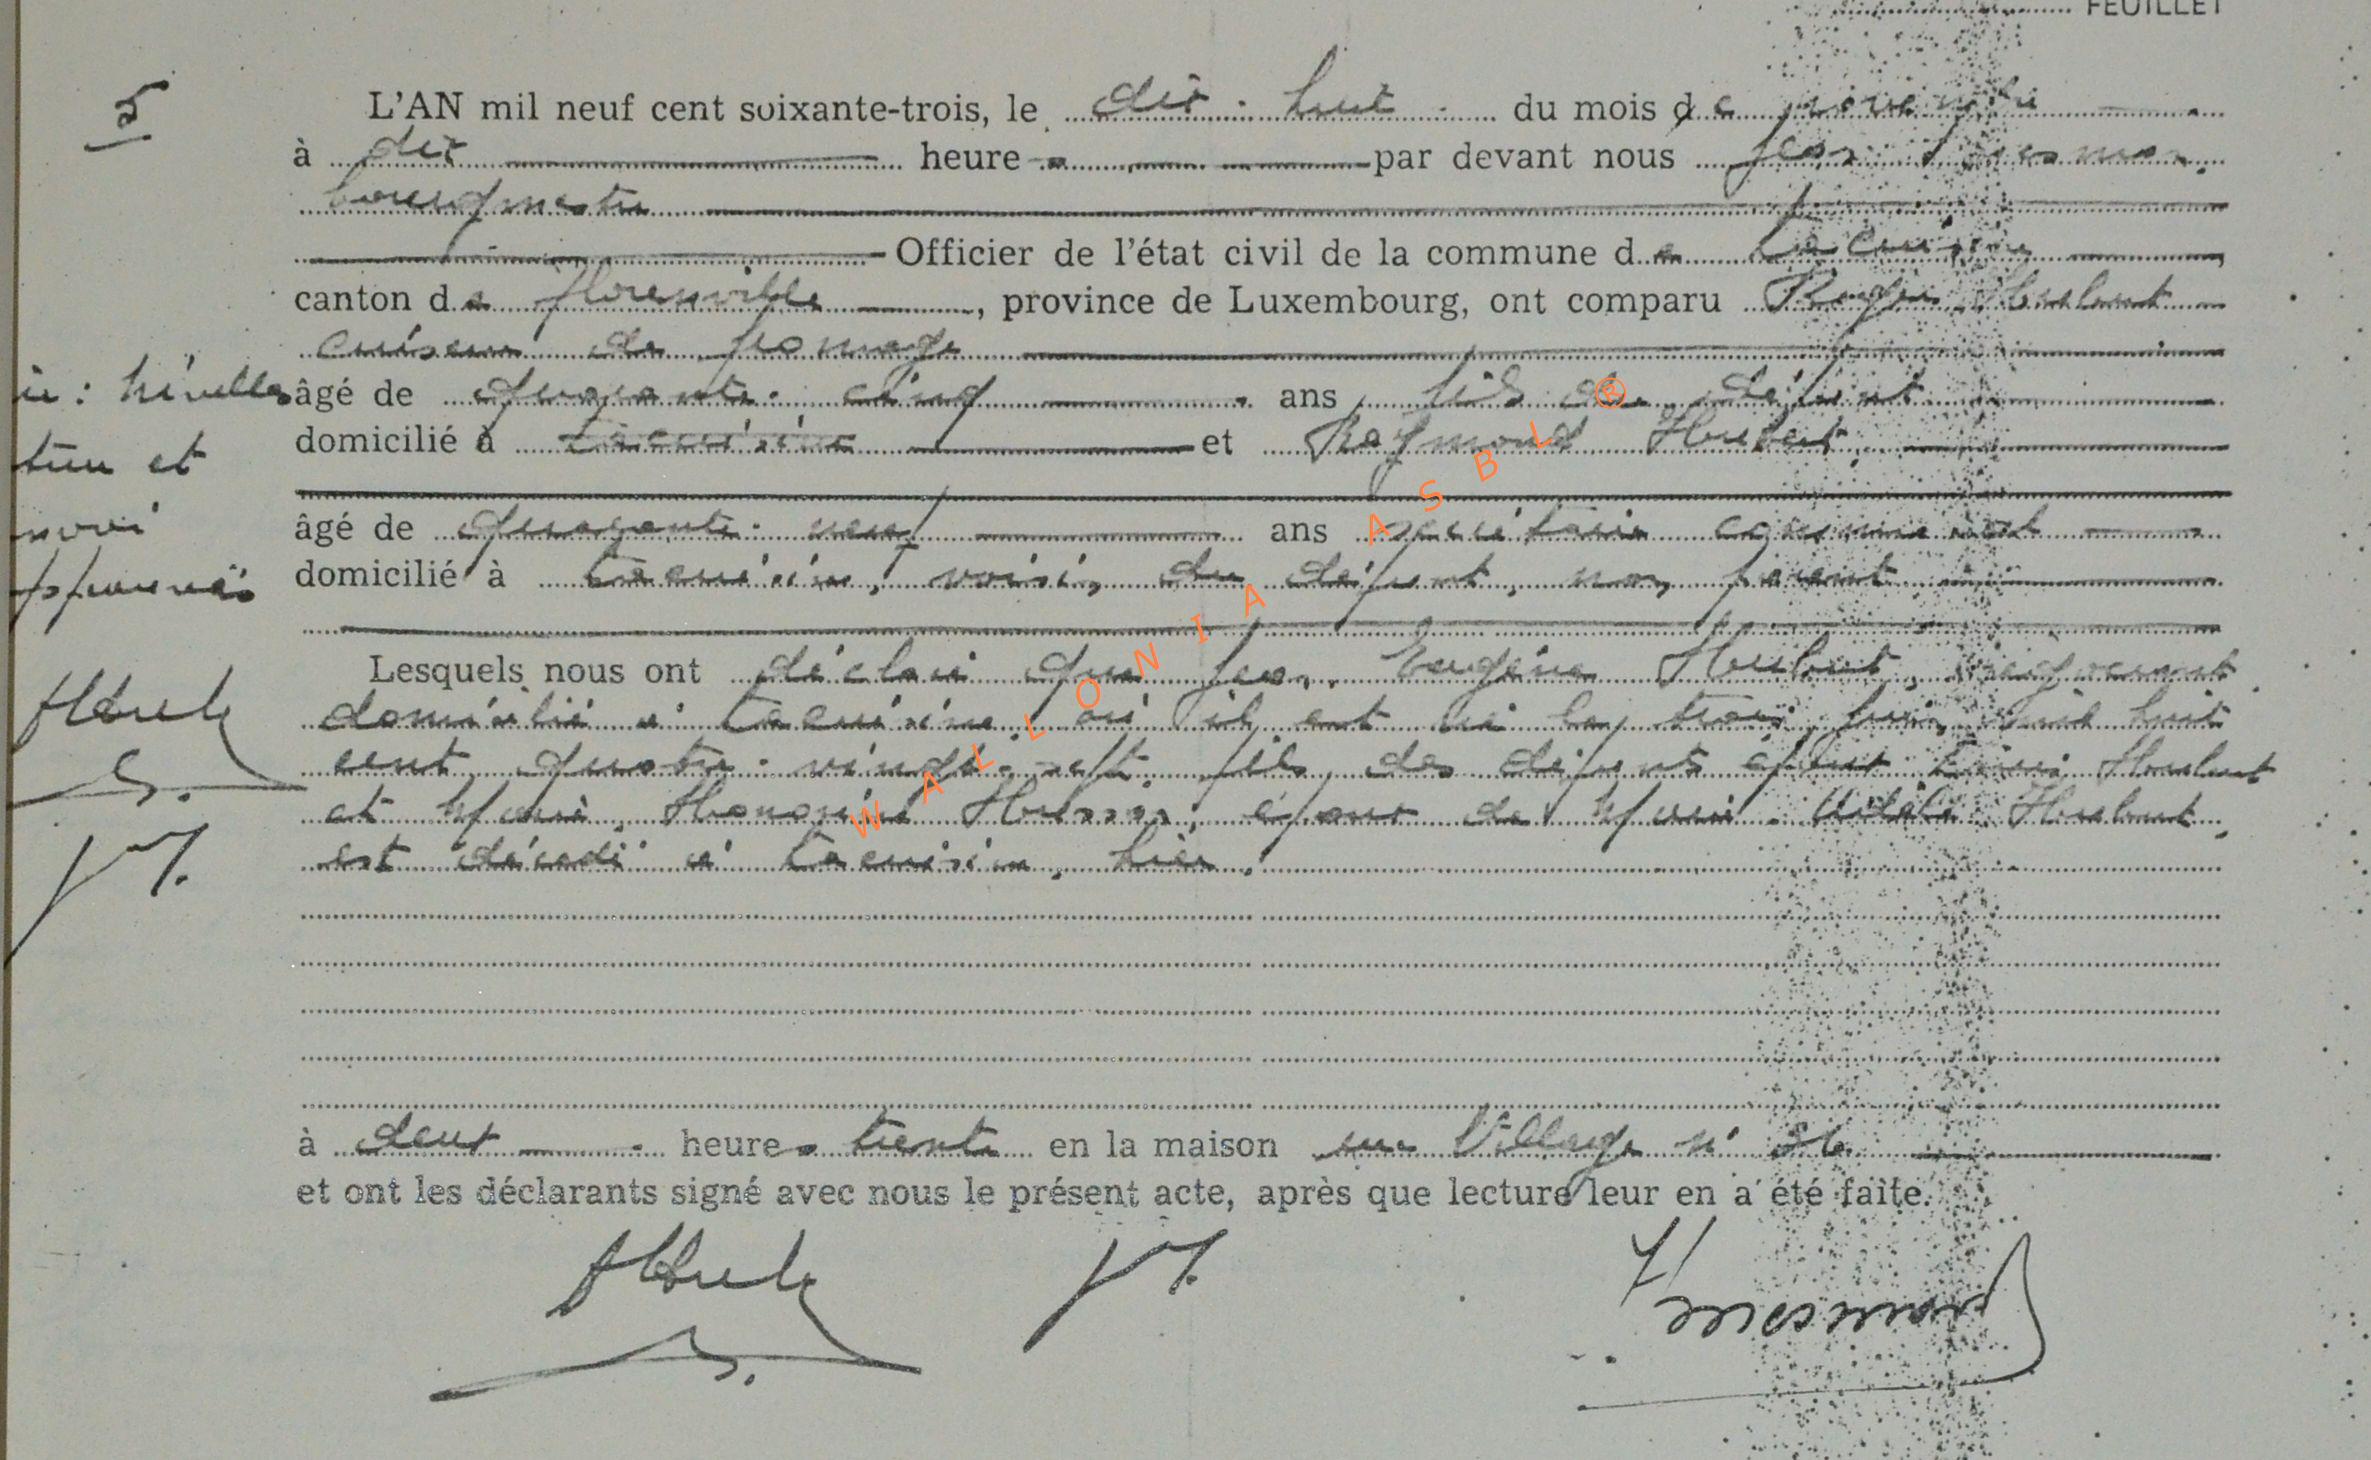 FEUILLET
5
L'AN mil neuf cent soixante-trois, le dix-huit du mois de novembre
à dix heures par devant nous Jean
bourgmestre
Officier de l'état civil de la commune de Lacuisine
canton de Florenville, province de Luxembourg, ont comparu Roger Hubert
cuiseur de fromage
âgé de quarante-cinq ans fils du défunt
domicilié à Lacuisine et Raymond Hubert
âgé de quarante-neuf ans secrétaire communal
domicilié à Lacuisine, voisin du défunt, non parent
Lesquels nous ont déclaré que Jean Eugène Hubert,
domicilié à Lacuisine où il est né le trois juin mil huit
cent quatre-vingt-sept fils des défunts Hubert
et Marie Honorine Husson, époux de Marie Hubert,
est décédé à Lacuisine, hier,
à deux heures trente en la maison rue Village n° 36
et ont les déclarants signé avec nous le présent acte, après que lecture leur en a été faite.
: Nivelles
et
WALLONIA ASBL ®